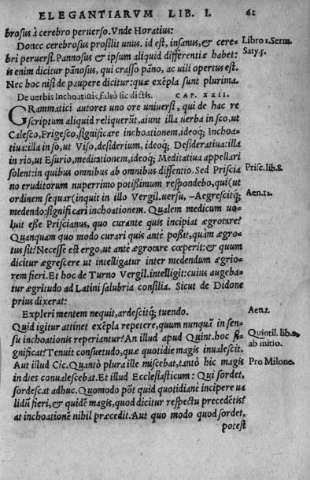 ELEGANTIARVM LIB. I. 61
brosus à cerebro peruerso. Vnde Horatius:
Donec cerebrosus prosilit unus. id est, insanus, & cere-
bri peruersi. Pannosus & ipsum aliquid differentiæ habet:
is enim dicitur pānosus, qui crasso pāno, ac uili opertus est.
Nec hoc nisi de paupere dicitur: quæ exēpla sunt plurima.
Libro 1. Serm.
Saty. 5.
De uerbis inchoatiuis, falso sic dictis. CAP. XXII.
GRammatici autores uno ore uniuersi, qui de hac re
scriptum aliquid reliquerūt, aiunt illa uerba in sco, ut
Calesco, Frigesco, significare inchoationem, ideoq; Inchoa-
tiua: illa in so, ut Viso, desiderium, ideoq; Desideratiua: illa
in rio, ut Esurio, meditationem, ideoq; Meditatiua appellari
solent: in quibus omnibus ab omnibus dissentio. Sed Priscia
no eruditorum nuperrimo potissimum respondebo, qui (ut
ordinem sequar) inquit in illo Vergil. uersu, —Aegrescitq;
medendo: significari inchoationem. Qualem medicum uo-
luit esse Priscianus, quo curante quis incipiat ægrotare?
Quanquam quo modo curari quis ante potest, quàm ægro-
tus sit? Necesse est ergo, ut ante ægrotare cœperit: & quum
dicitur ægrescere ut intelligatur inter medendum ægrio-
rem fieri. Et hoc de Turno Vergil. intelligit: cuius augeba-
tur ægritudo ad Latini salubria consilia. Sicut de Didone
prius dixerat:
Prisc. lib. 8.
Aen. 12.
Expleri mentem nequit, ardescitq; tuendo.
Aen. 1.
Quid igitur attinet exēpla repetere, quum nunquā in sen-
su inchoationis reperiantur? An illud apud Quint. hoc si-
gnificat? Tenuit consuetudo, quæ quotidie magis inualescit.
Aut illud Cic. Quanto plura ille miscebat, tantò hic magis
in dies conualescebat. Et illud Ecclesiasticum: Qui sordet,
sordescat adhuc. Quomodo pōt quid quotidiani incipere ua
lidū fieri, & quidē magis, quod dicitur respectu precedētis?
at inchoationē nihil præcedit. Aut quo modo quod sordet,
potest
Quintil. lib. 2.
ab initio.
Pro Milone.